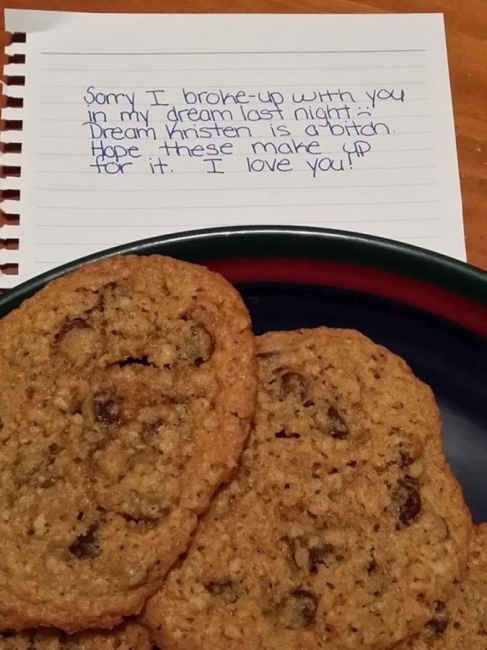 Sorry I broke-up with you
in my dream last night :(
Dream Kristen is a bitch.
Hope these make up
for it. I love you!